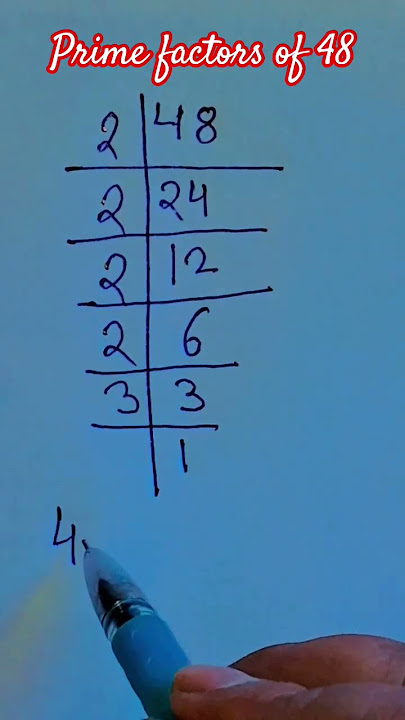 Prime factors of 48
2 48
2 24
2 12
2 6
3 3
1
4